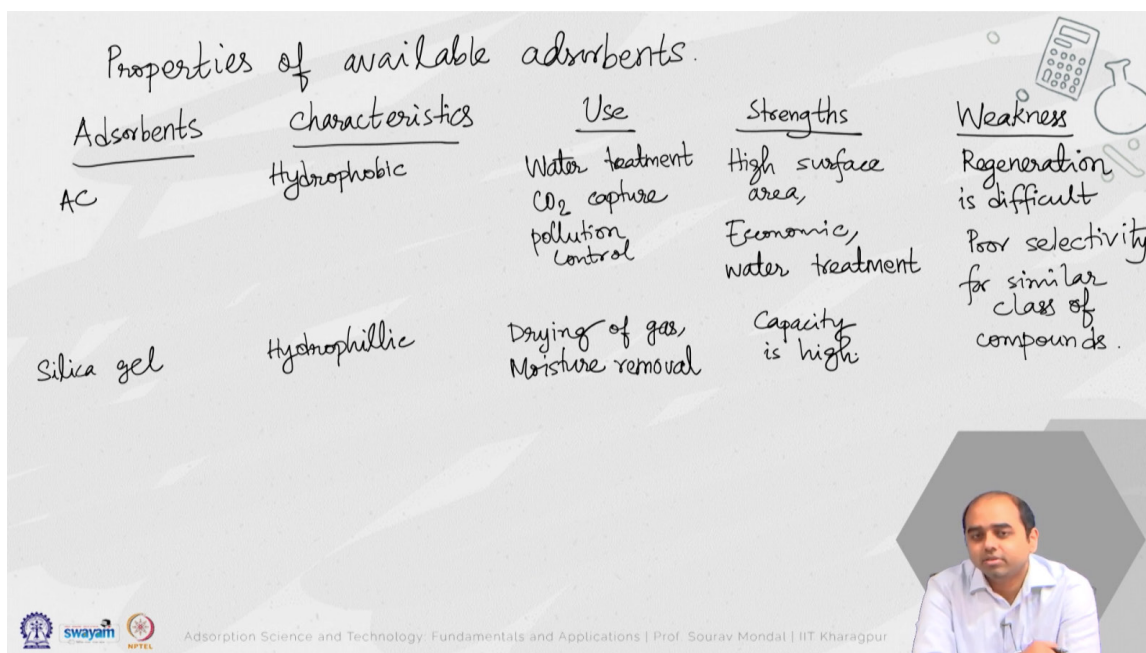 Properties of available adsorbents.
Adsorbents
Characteristics
Use
Strengths
Weakness
AC
Hydrophobic
Water treatment
CO2 capture
pollution
control
High surface
area,
Economic,
water treatment
Regeneration
is difficult
Poor selectivity
for similar
class of
compounds.
Silica gel
Hydrophillic
Drying of gas,
Moisture removal
Capacity
is high.
swayam
NPTEL
Adsorption Science and Technology: Fundamentals and Applications | Prof Sourav Mondal | IIT Kharagpur